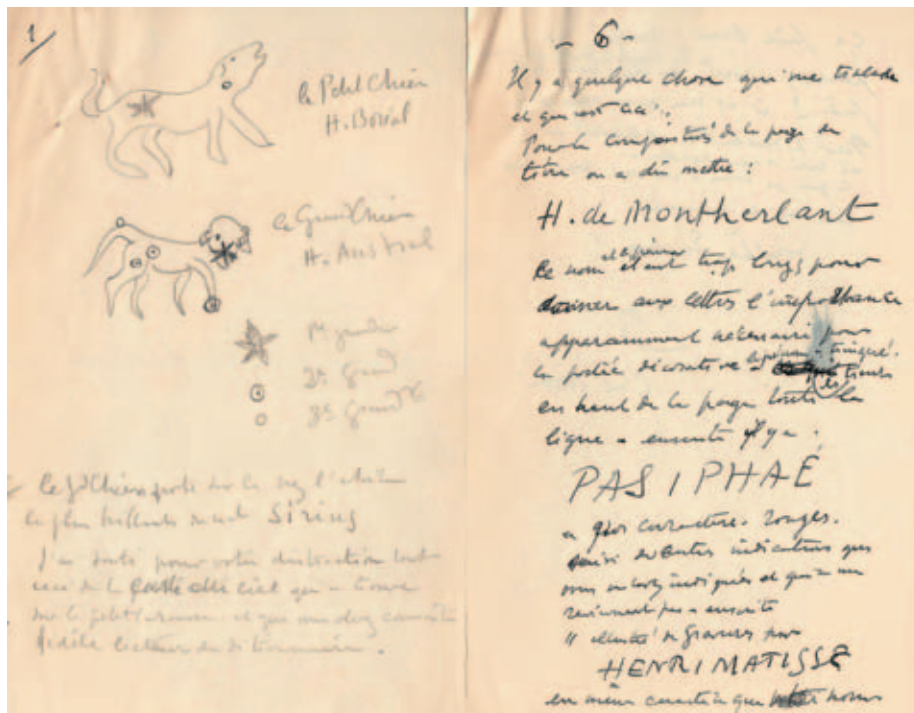 1/
le Petit Chien
H. Boréal
le Grand Chien
H. Austral
1re grandeur
2e Grand
3e Grand
le Gd Chien porte sur le nez l'étoile
la plus brillante du Sirius
J'ai pour votre distraction tout
ceci de la carte du ciel qui se trouve
sur le petit Larousse et que vous devez connaître
fidèle lecteur du dictionnaire.
- 6 -
Il y a quelque chose qui me tracasse
et qui est ceci :
Pour la composition de la page de
titre on a dû mettre :
H. de Montherlant
Le nom et le prénom étant trop longs pour
donner aux lettres l'importance
apparemment nécessaire pour
la partie décorative
en haut de la page toute la
ligne - ensuite il y a :
PASIPHAÉ
en gros caractères rouges.
suivi d'autres indications que
vous indiqués et qui ne me
reviennent pas - ensuite
illustré de gravures par
HENRI MATISSE
en même caractère que nom